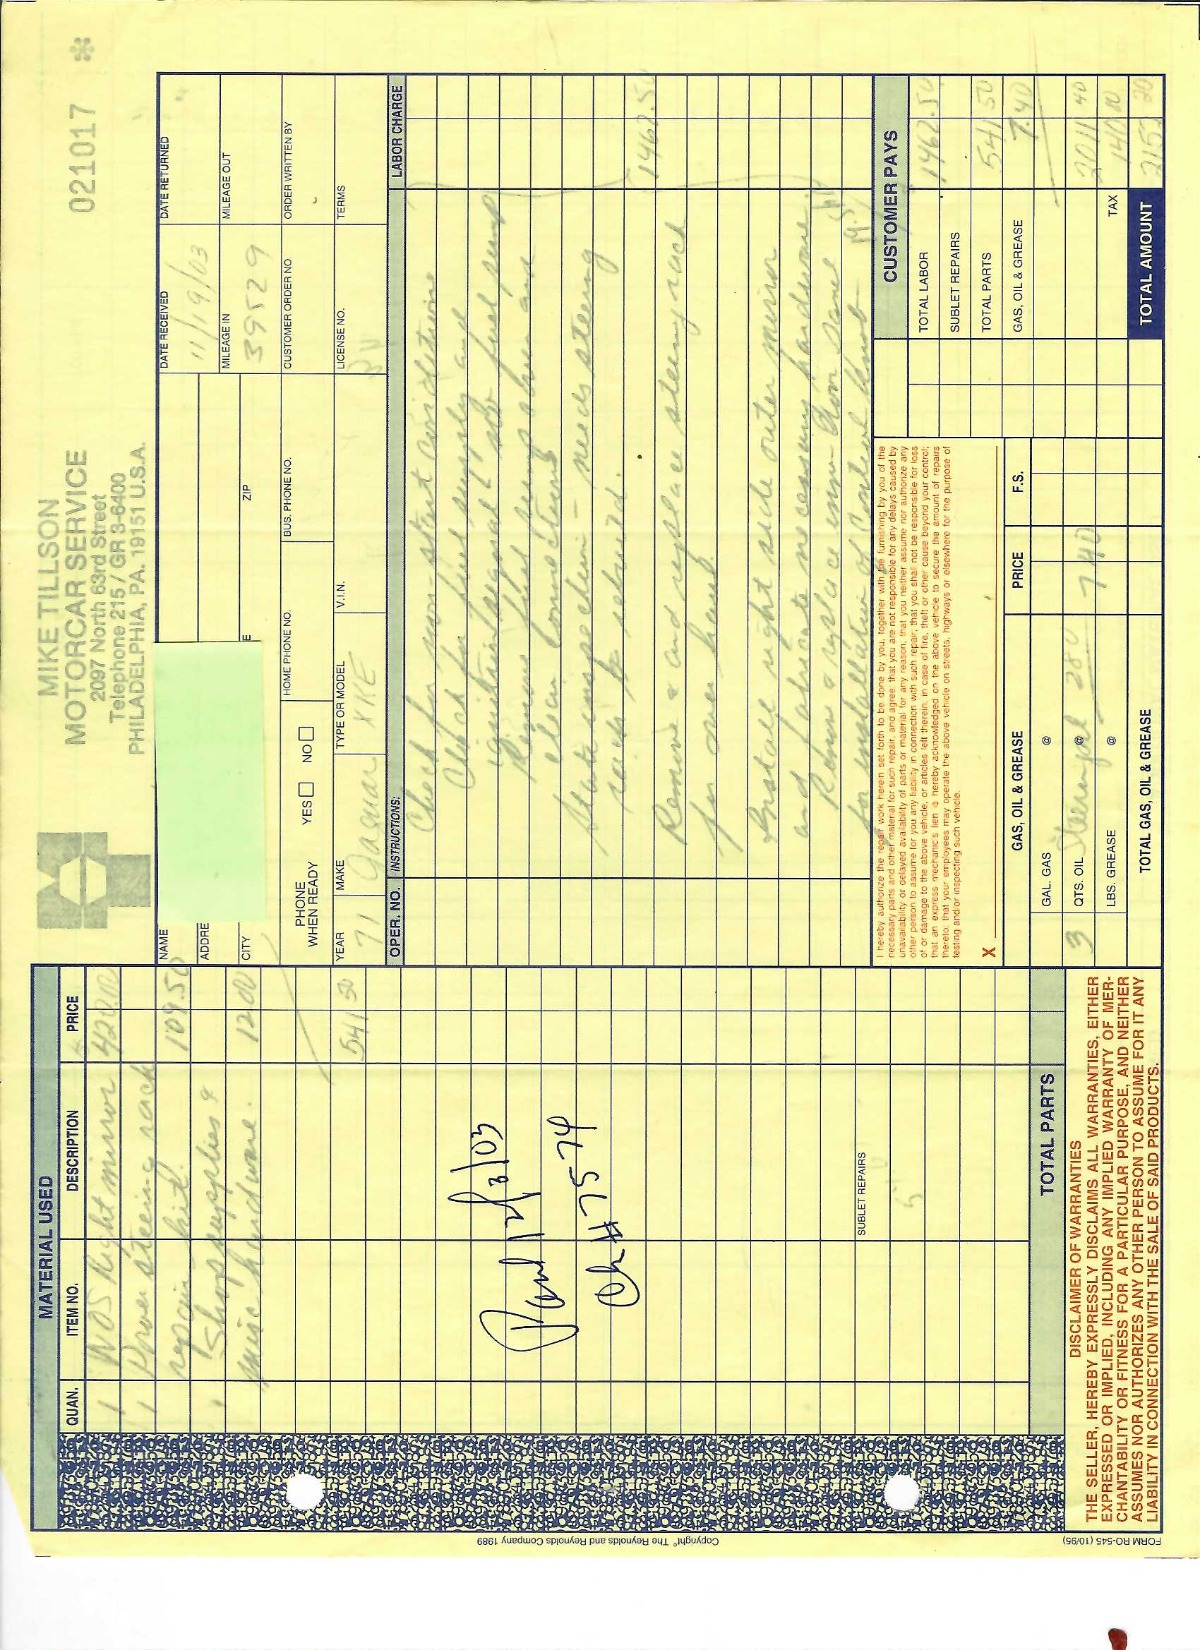 MIKE TILLSON
MOTORCAR SERVICE
2097 North 63rd Street
Telephone 215 / GR 3-6400
PHILADELPHIA, PA. 19151 U.S.A.
021017 *
MATERIAL USED
QUAN. ITEM NO. DESCRIPTION PRICE
1 NOS Right mirror 420.00
1 Power steering rack
repair kit 109.50
Shop supplies &
misc hardware. 12 00
541 50
Paid 12/3/03
Ch # 7574
SUBLET REPAIRS
TOTAL PARTS
DISCLAIMER OF WARRANTIES
THE SELLER, HEREBY EXPRESSLY DISCLAIMS ALL WARRANTIES, EITHER
EXPRESSED OR IMPLIED, INCLUDING ANY IMPLIED WARRANTY OF MER-
CHANTABILITY OR FITNESS FOR A PARTICULAR PURPOSE, AND NEITHER
ASSUMES NOR AUTHORIZES ANY OTHER PERSON TO ASSUME FOR IT ANY
LIABILITY IN CONNECTION WITH THE SALE OF SAID PRODUCTS.
NAME DATE RECEIVED 11/19/03 DATE RETURNED
ADDRE
CITY E ZIP MILEAGE IN 39529 MILEAGE OUT
PHONE WHEN READY YES NO HOME PHONE NO. BUS. PHONE NO. CUSTOMER ORDER NO. ORDER WRITTEN BY
YEAR 71 MAKE Jaguar TYPE OR MODEL XKE V.I.N. LICENSE NO. TERMS
OPER. NO. INSTRUCTIONS: LABOR CHARGE
Check for non-start condition
Check fuel supply and
ignition
Remove fuel pump
clean connections
State inspection - needs steering
rack to rebuild.
Remove and replace steering rack
for over haul 1462.50
Install right side outer mirror
and fabricate necessary hardware
Remove & replace inner door panel
for installation of control knob -
I hereby authorize the repair work herein set forth to be done by you, together with the furnishing by you of the
necessary parts and other material for such repair, and agree that you are not responsible for any delays caused by
unavailability or delayed availability of parts or material for any reason; that you neither assume nor authorize any
other person to assume for you any liability in connection with such repair; that you shall not be responsible for loss
of or damage to the above vehicle, or articles left therein, in case of fire, theft or other cause beyond your control;
that an express mechanic's lien is hereby acknowledged on the above vehicle to secure the amount of repairs
thereto; that your employees may operate the above vehicle on streets, highways or elsewhere for the purpose of
testing and/or inspecting such vehicle.
X
CUSTOMER PAYS
TOTAL LABOR 1462.50
SUBLET REPAIRS
TOTAL PARTS 541 50
GAS, OIL & GREASE 7.40
2011 40
TAX 140.80
TOTAL AMOUNT
GAS, OIL & GREASE PRICE F.S.
GAL. GAS @
3 QTS. OIL @ 7 40
LBS. GREASE @
TOTAL GAS, OIL & GREASE
Copyright© The Reynolds and Reynolds Company 1989
FORM RO-545 (10/95)